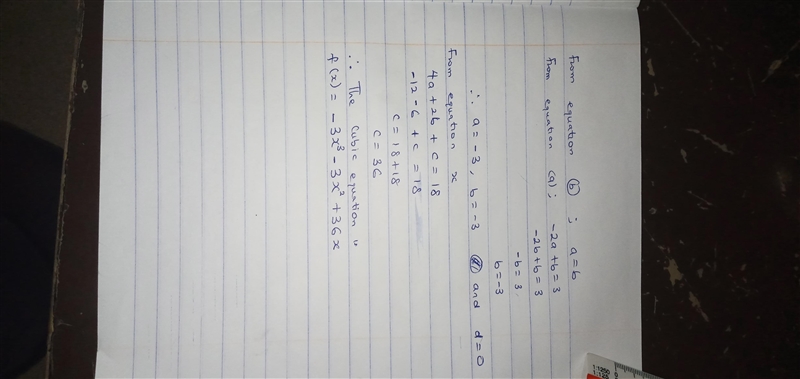 from equation (b) ; a=b
from equation (a) ; -2a+b=3
-2b+b=3
-b=3.
b=-3
∴ a=-3, b=-3 and d=0
from equation x
4a+2b+c=18
-12-6+c=18
c=18+18
c=36
∴ The cubic equation is
f(x) = -3x³-3x²+36x
1:1250